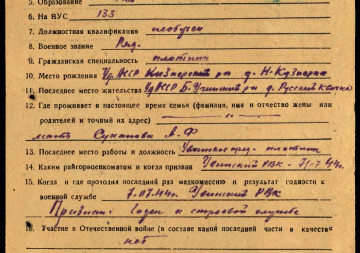 5. Образование
6. На ВУС 133
7. Должностная квалификация необучен
8. Военное звание Ряд.
9. Гражданская специальность плотник
10. Место рождения Уд АССР Кизнерский р-н д. Н-Кизнерка
11. Последнее место жительства УдАССР Б-Учинский р-н д. Русский
12. Где проживает в настоящее время семья (фамилия, имя и отчество жены или
родителей и точный их адрес)
мать А. Ф
13. Последнее место работы и должность плотник
14. Каким райгорвоенкоматом и когда призван РВК -
15. Когда и где проходил последний раз медкомиссию и результат годности к
военной службе 7.07.44г. РВК
Признан: годен к строевой службе
16. Участие в Отечественной войне (в составе какой последней части и качестве)
нет